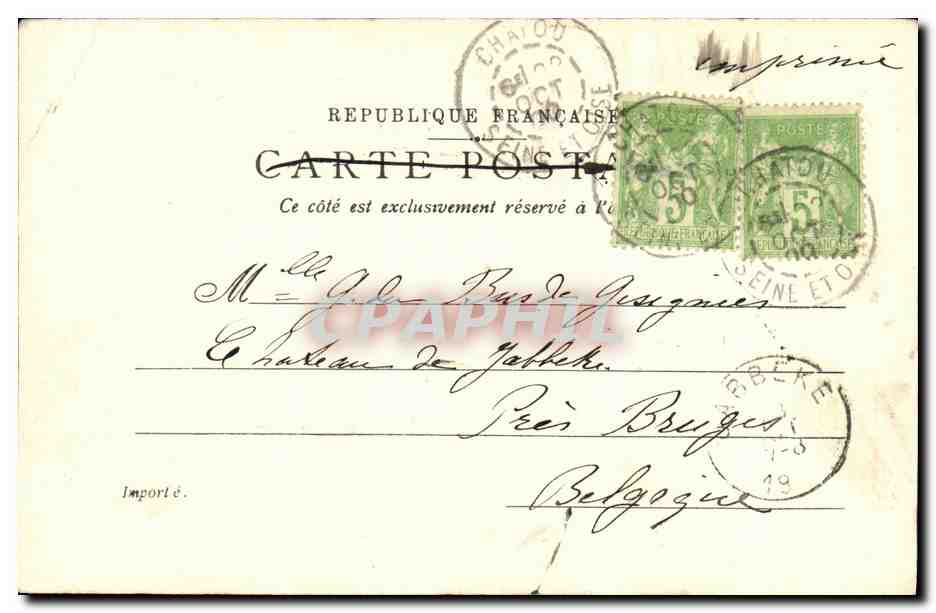 imprimé
REPUBLIQUE FRANÇAISE
CARTE POSTA
Ce côté est exclusivement réservé à l'a
CHATOU
OCT
SEINE ET OISE
POSTE
5
REPUBLIQUE FRANÇAISE
POSTE
5
REPUBLIQUE FRANÇAISE
CHATOU
OCT
00
SEINE ET O
Mlle G. du Bus de Gisignies
Le Chateau de Jabbeke
CPAPHIL
Près Bruges
ABBEKE
19
Importé.
Belgique